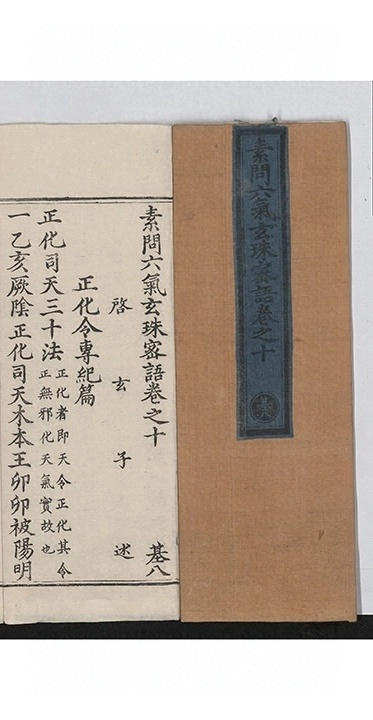 素問六氣玄珠密語卷之十
基八
素問六氣玄珠密語卷之十 基八
啓玄子述
正化令專紀篇
正化司天三十法 正化者即天令正化其令正無邪化天氣實故也
一乙亥厥陰正化司天木本王卯卯被陽明